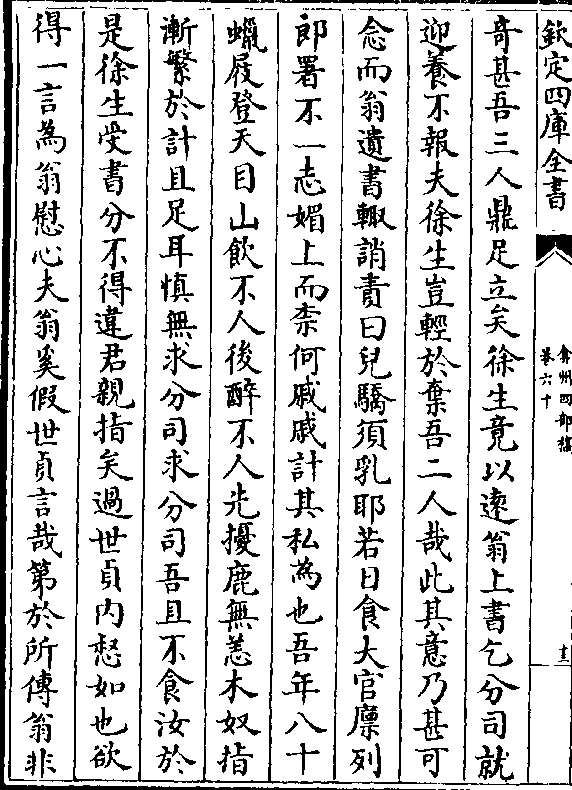 欽定四庫全書
弇州四部稿
卷六十
十三
奇甚吾三人鼎足立矣徐生竟以遠翁上書乞分司就
迎養不報夫徐生豈輕於棄吾二人哉此其意乃甚可
念而翁遺書輙誚責曰兒驕須乳耶若日食大官廩列
郎署不一志媚上而柰何戚戚計其私為也吾年八十
蠟屐登天目山飲不人後醉不人先擾鹿無恙木奴指
漸繁於計且足耳慎無求分司求分司吾且不食汝於
是徐生受書分不得違君親指矣過世貞內愗如也欲
得一言為翁慰心夫翁奚假世貞言哉第於所傳翁非